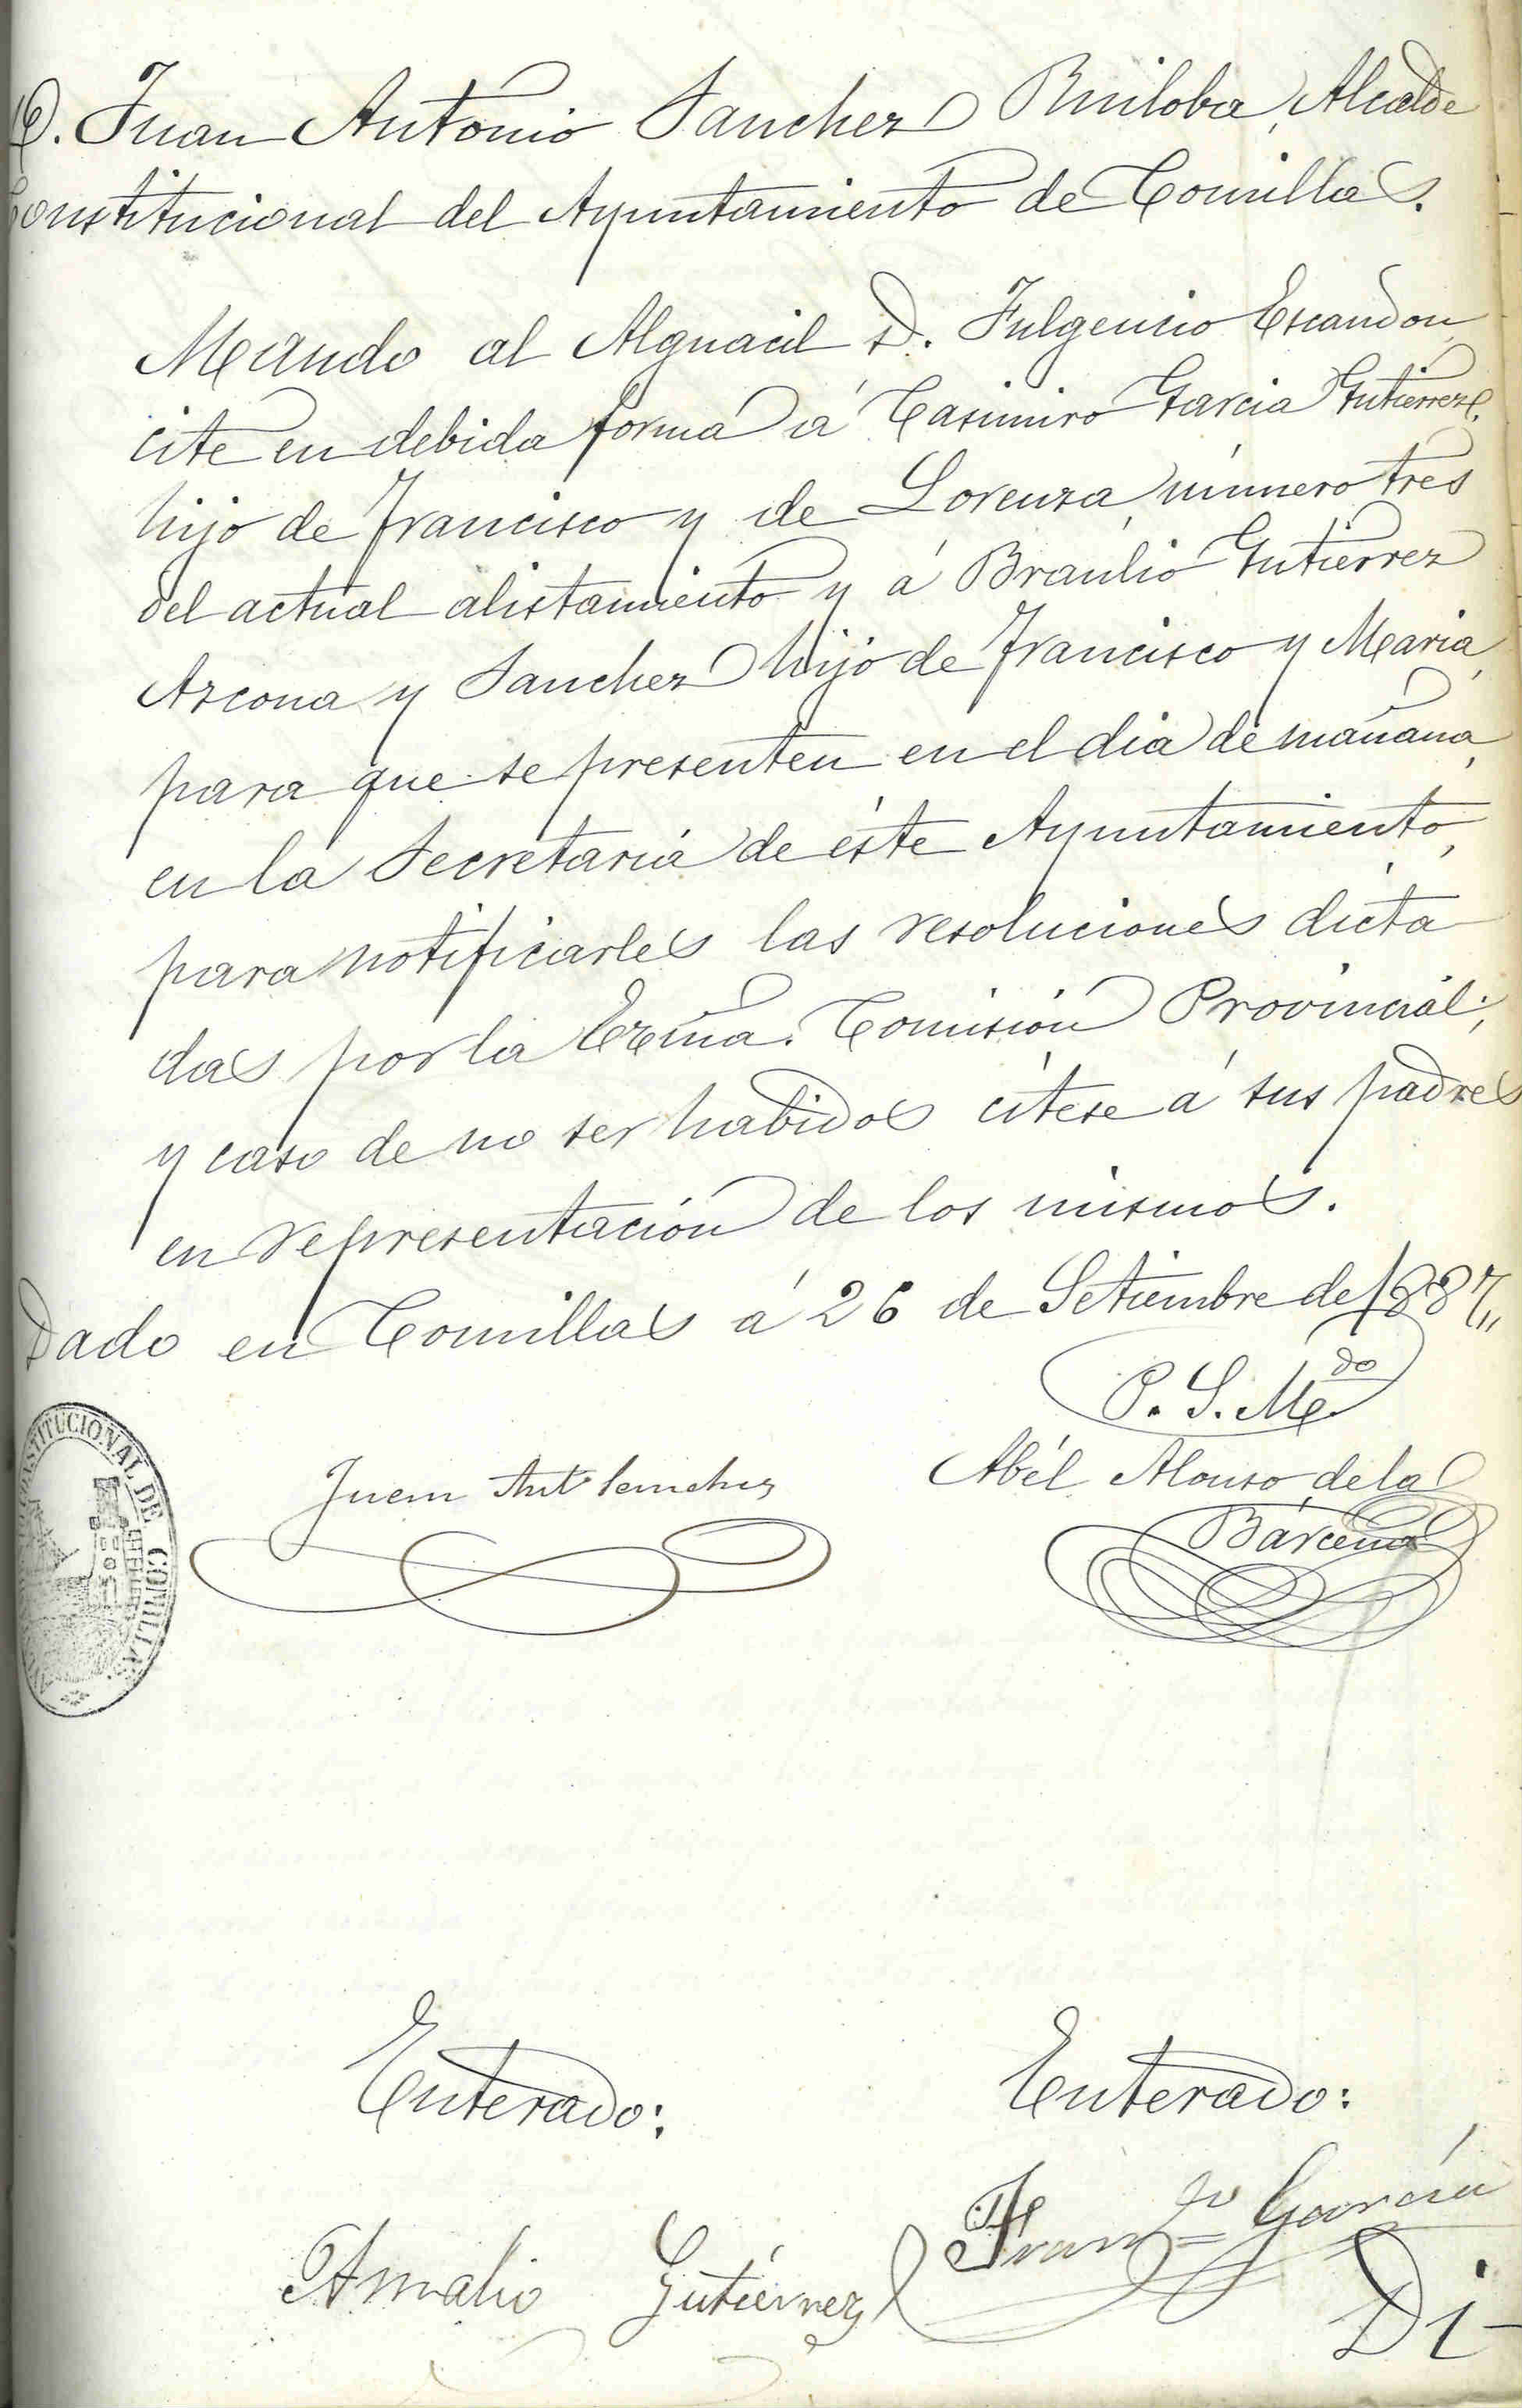 D. Juan Antonio Sanchez Ruiloba, Alcalde
Constitucional del Ayuntamiento de Comillas.
Mando al Alguacil D. Fulgencio Escandon
cite en debida forma á Casimiro Garcia Gutierrez,
hijo de Francisco y de Lorenza, número tres
del actual alistamiento y á Braulio Gutierrez
Azcona y Sanchez hijo de Francisco y Maria,
para que se presenten en el dia de mañana,
en la Secretaría de éste Ayuntamiento,
para notificarles las resoluciones dicta
das por la Excma. Comisión Provincial;
y caso de no ser habidos cítese á sus padres
en representación de los mismos.
Dado en Comillas á 26 de Setiembre de 1887,,
P. S. Mdo
Juan Ant Sanchez
Abél Alonso de la
Bárcena
CONSTITUCIONAL DE COMILLAS
Enterado: Enterado:
Amalio Gutiérrez Franco García
Di-